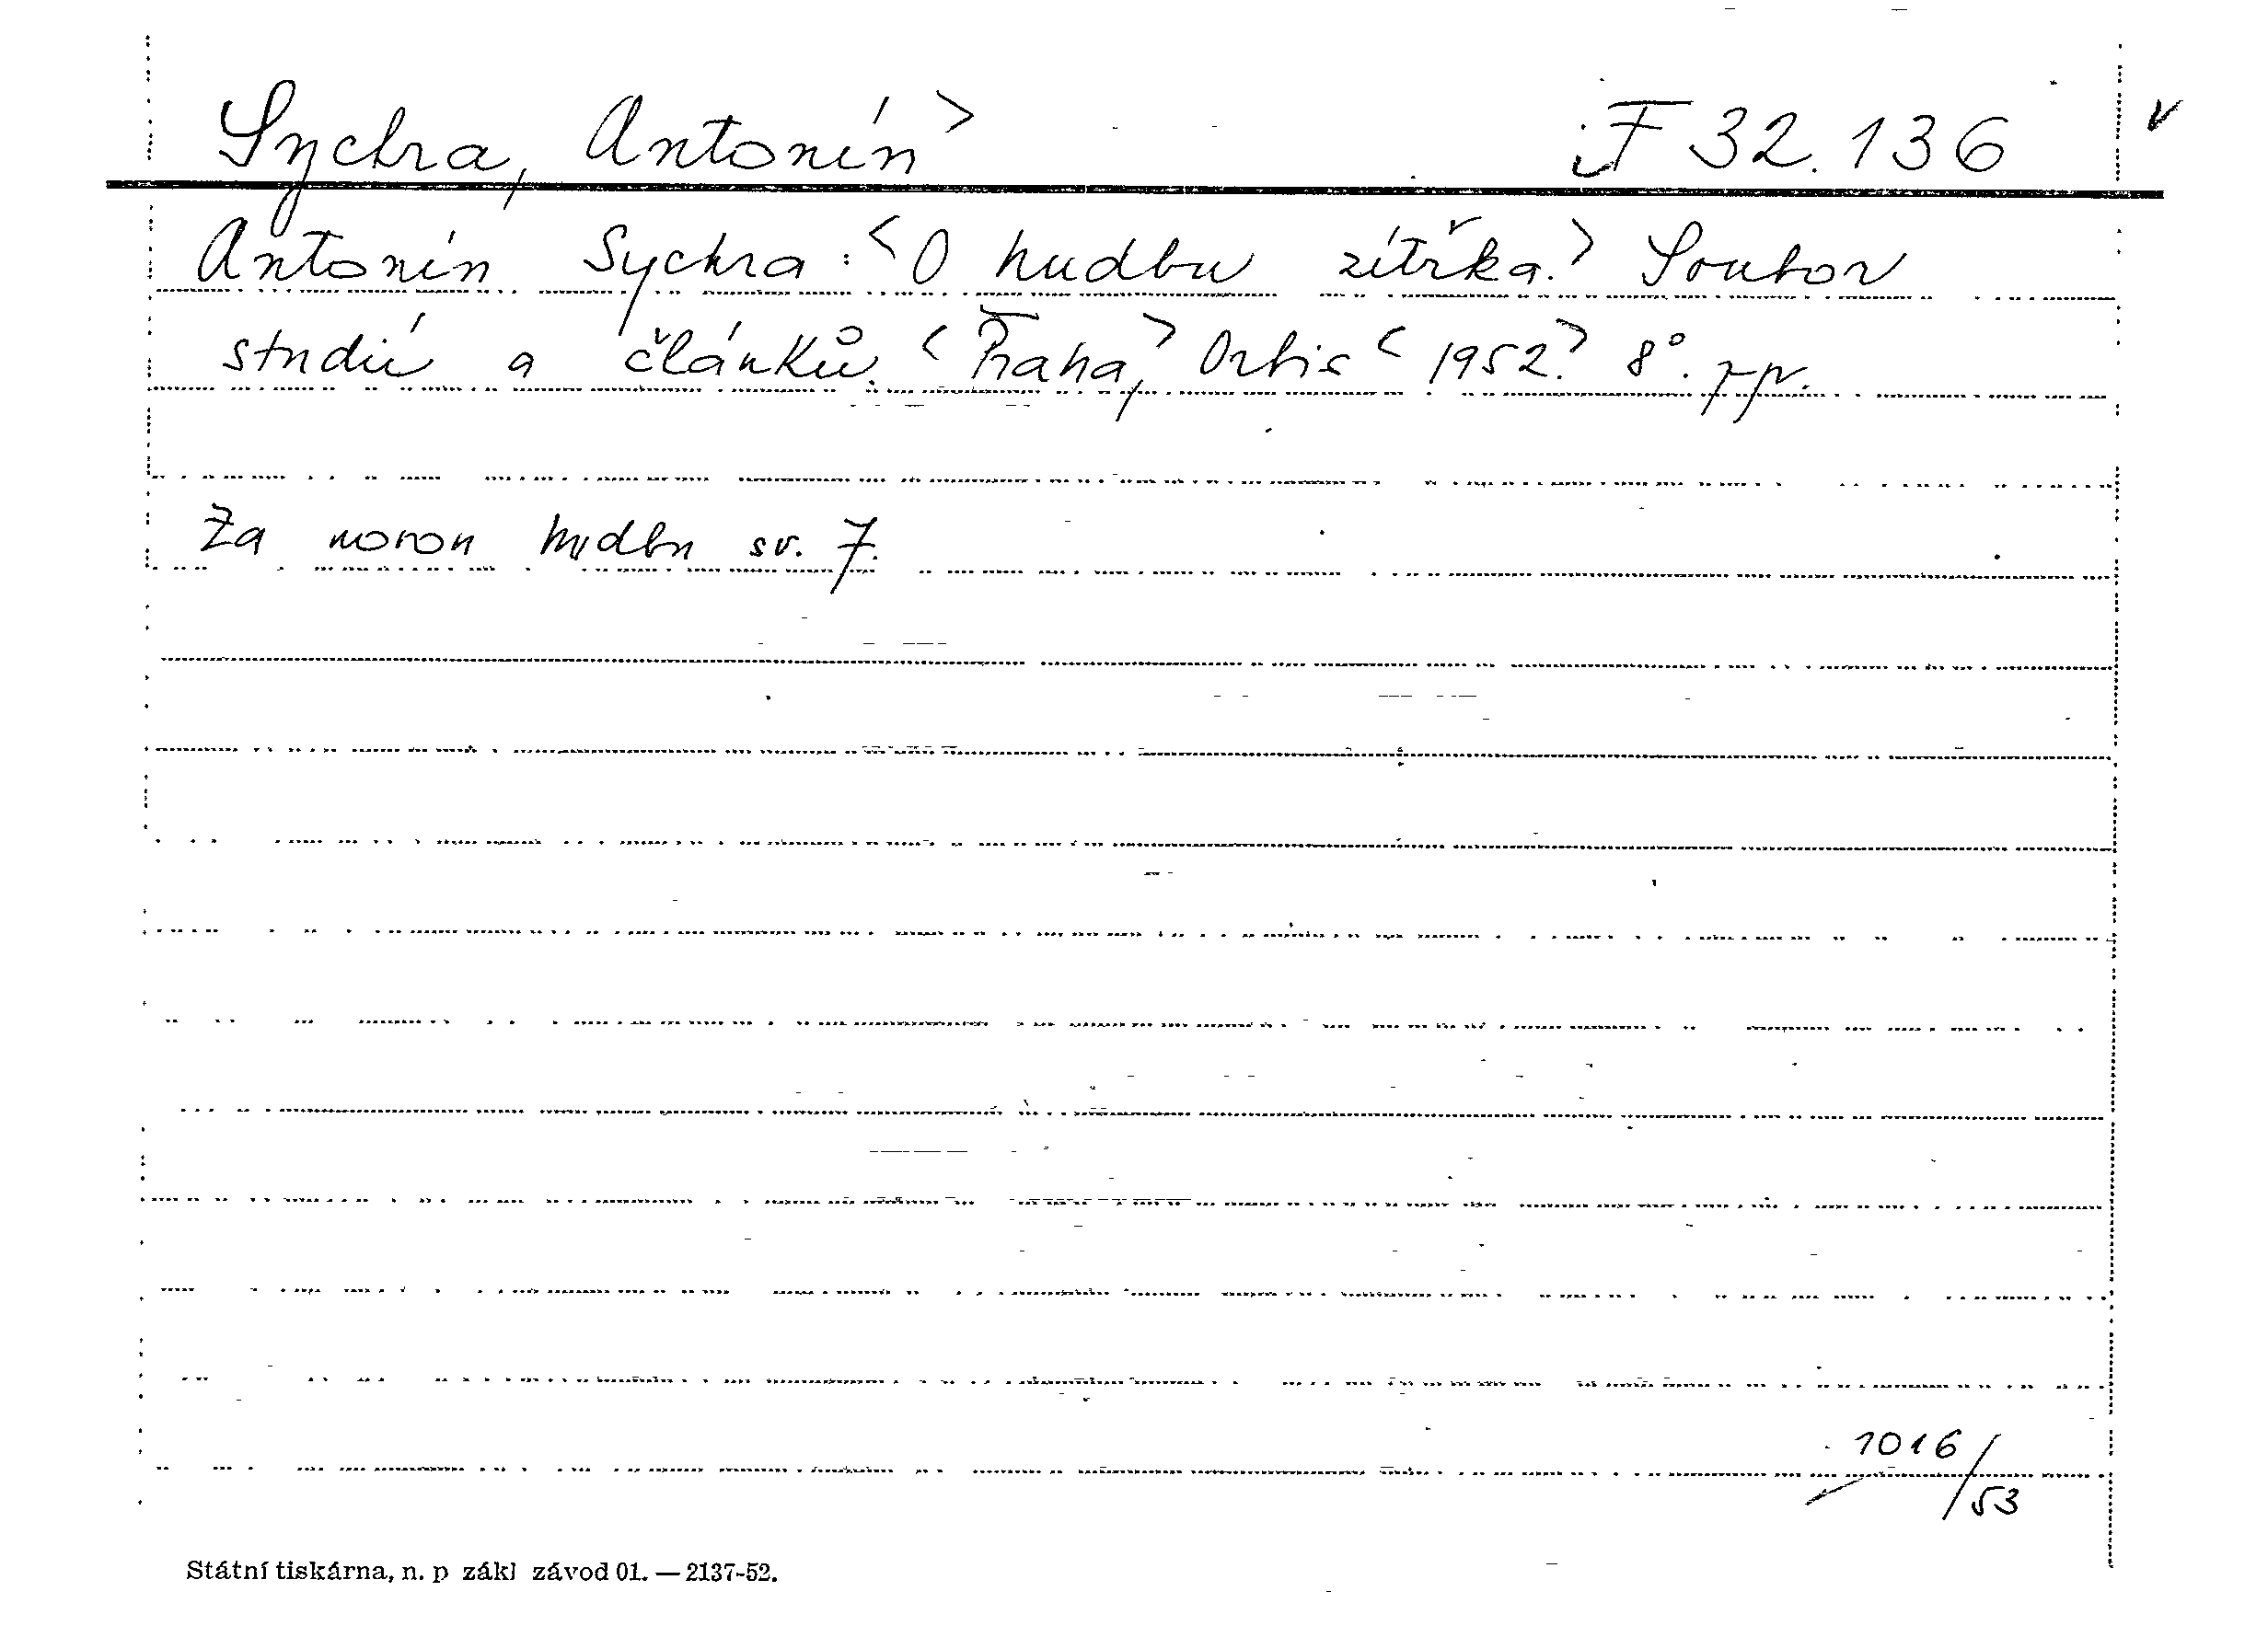 Sychra, Antonín> F 32.136 v
Antonín Sychra: <O hudbu zítřka.> Soubor
studií a článků. <Praha,> Orbis <1952.> 8°. pp.
Za novou hudbu sv. 7.
1016/53
Státní tiskárna, n. p zákl závod 01. — 2137-52.